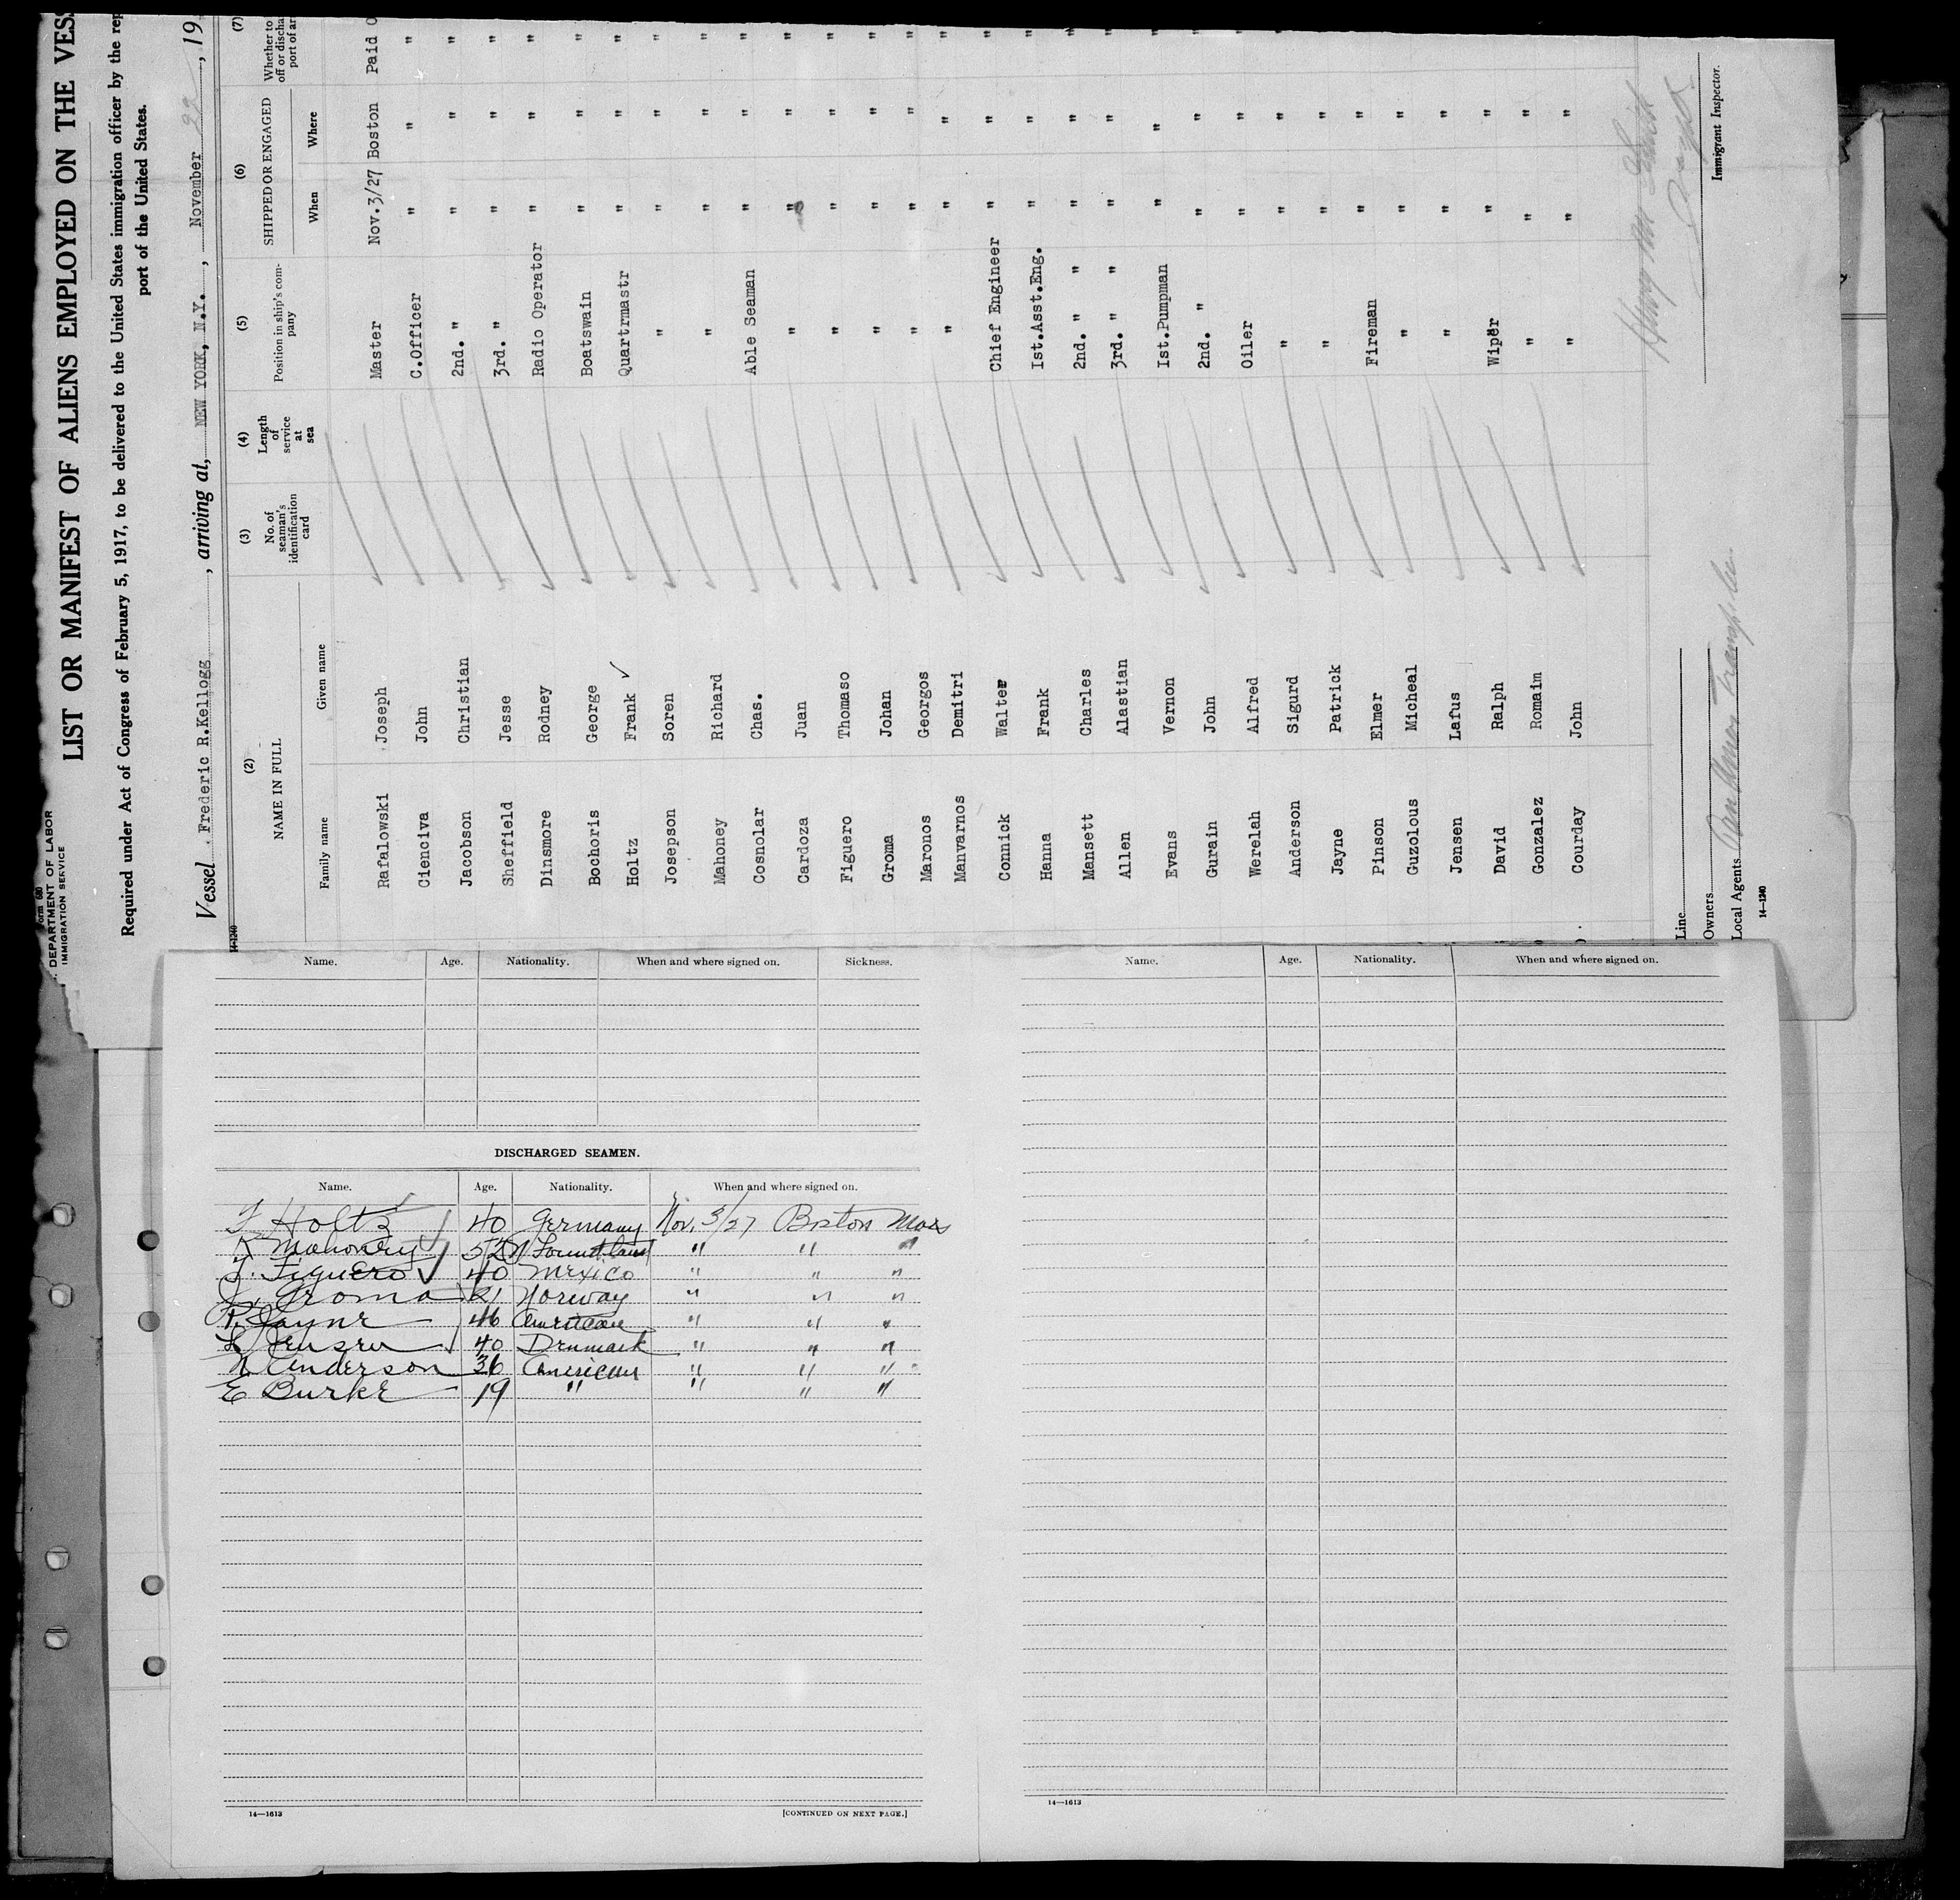 Form 680
DEPARTMENT OF LABOR
IMMIGRATION SERVICE
LIST OR MANIFEST OF ALIENS EMPLOYED ON THE VES
Required under Act of Congress of February 5, 1917, to be delivered to the United States immigration officer by the rep
port of the United States.
Vessel Frederic R.Kellogg, arriving at, NEW YORK, N.Y., November 22, 19
14-1240
(2) (3) (4) (5) (6) (7)
NAME IN FULL No. of seaman's identification card Length of service at sea Position in ship's company SHIPPED OR ENGAGED Whether to
off or discha
port of ar
Family name Given name When Where
Rafalowski Joseph Master Nov.3/27 Boston Paid O
Cienciva John C.Officer " " "
Jacobson Christian 2nd. " " " "
Sheffield Jesse 3rd. " " " "
Dinsmore Rodney Radio Operator " " "
Bochoris George Boatswain " " "
Holtz Frank ✓ Quartrmastr " " "
Josepson Soren " " " "
Mahoney Richard " " " "
Cosnolar Chas. Able Seaman " " "
Cardoza Juan " " " "
Figuero Thomaso " " " "
Groma Johan " " " "
Maronos Georgos " " " "
Manvarnos Demitri " " " "
Connick Walter Chief Engineer " " "
Hanna Frank Ist.Asst.Eng. " " "
Mansett Charles 2nd. " " " " "
Allen Alastian 3rd. " " " " "
Evans Vernon Ist.Pumpman " " "
Gurain John 2nd. " " " "
Werelah Alfred Oiler " " "
Anderson Sigurd " " " "
Jayne Patrick " " " "
Pinson Elmer Fireman " " "
Guzolous Micheal " " "
Jensen Lafus " " "
David Ralph Wiper " "
Gonzalez Romaim " " "
Courday John " " "
Line
Owners
Local Agents
Immigrant Inspector.
14-1240
Name. Age. Nationality. When and where signed on. Sickness.
DISCHARGED SEAMEN.
Name. Age. Nationality. When and where signed on.
F Holtz 40 Germany Nov. 3/27 Boston Mass
R Mahoney 52 N Foundland " " "
T. Figuero 40 Mexico " " "
J. Groma 21 Norway " " "
P. Jayne 46 American " " "
L Jensen 40 Denmark " " "
Anderson 36 American " " "
E Burke 19 " " " "
14—1613 [CONTINUED ON NEXT PAGE.]
Name. Age. Nationality. When and where signed on.
14—1613